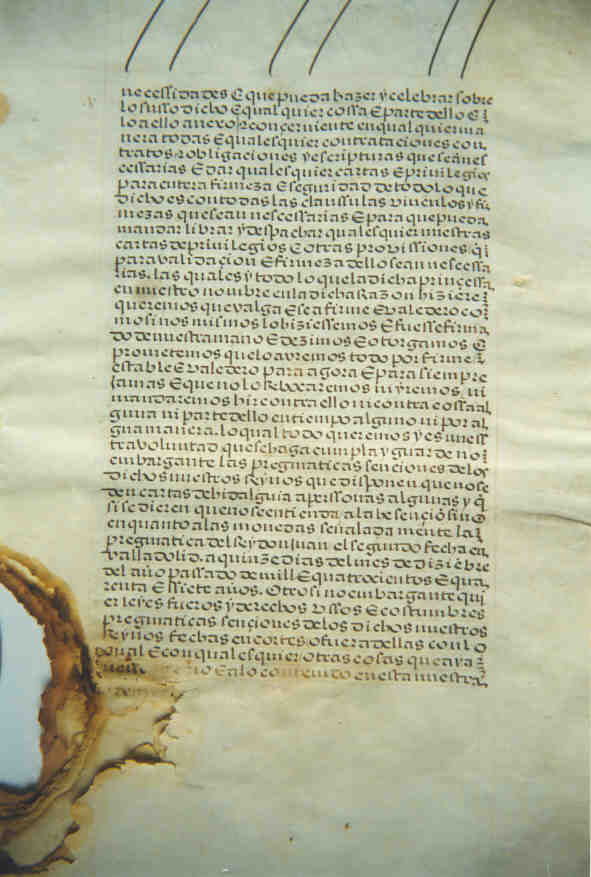 necessidades E que pueda hazer y celebrar sobre
lo susso dicho E qual quier cossa E parte dello E
lo a ello anexo z conçerniente en qual quier ma
nera todas E quales quier contrataçiones con
tratos z obligaçiones y escripturas que sean nes
cessarias E dar quales quier cartas E privilegios
para entera firmeza E seguridad de todo lo que
dicho es con todas las clausulas vinculos y fir
mezas que sean nescessarias E para que pueda
mandar librar y despachar quales quier nuestras
cartas de privilegios E otras provissiones q̃
para validaçion E firmeza dello sean nescessa
rias. las quales y todo lo que la dicha prinçessa
en nuestro nombre en la dicha Razon hiziere
queremos que valga E sea firme E valedero co
mo si nos mismos lo hiziessemos E fuesse firma
do de nuestra mano E dezimos E otorgamos E
prometemos que lo avremos todo por firme
estable E valedero para agora E para siempre
jamas E que no lo Rebocaremos ni yremos ni
mandaremos hir contra ello ni contra cossa al
guna ni parte dello en tiempo alguno ni por al
guna manera. lo qual todo queremos y es nuess
tra voluntad que se haga cunpla y guarde no
enbargante las pregmaticas sençiones de los
dichos nuestros Reynos que disponen que no se
den cartas de hidalguia a perssonas algunas y q̃
si se dieren que no se entienda a la hesençio sino
en quanto a las monedas señalada mente la
pregmatica del Rey don Juan el segundo fecha en
valladolid. a quinze dias del mes de diziẽbre
del año passado de mill E quatroçientos E qua
renta E siete años. Otro si no enbargante qui
er leyes fueros y derechos vssos E costunbres
pregmaticas sençiones de los dichos nuestros
Reynos fechas en cortes o fuera dellas con lo
qual E con quales quier otras cosas que aya
E a lo contenido en esta nuestra